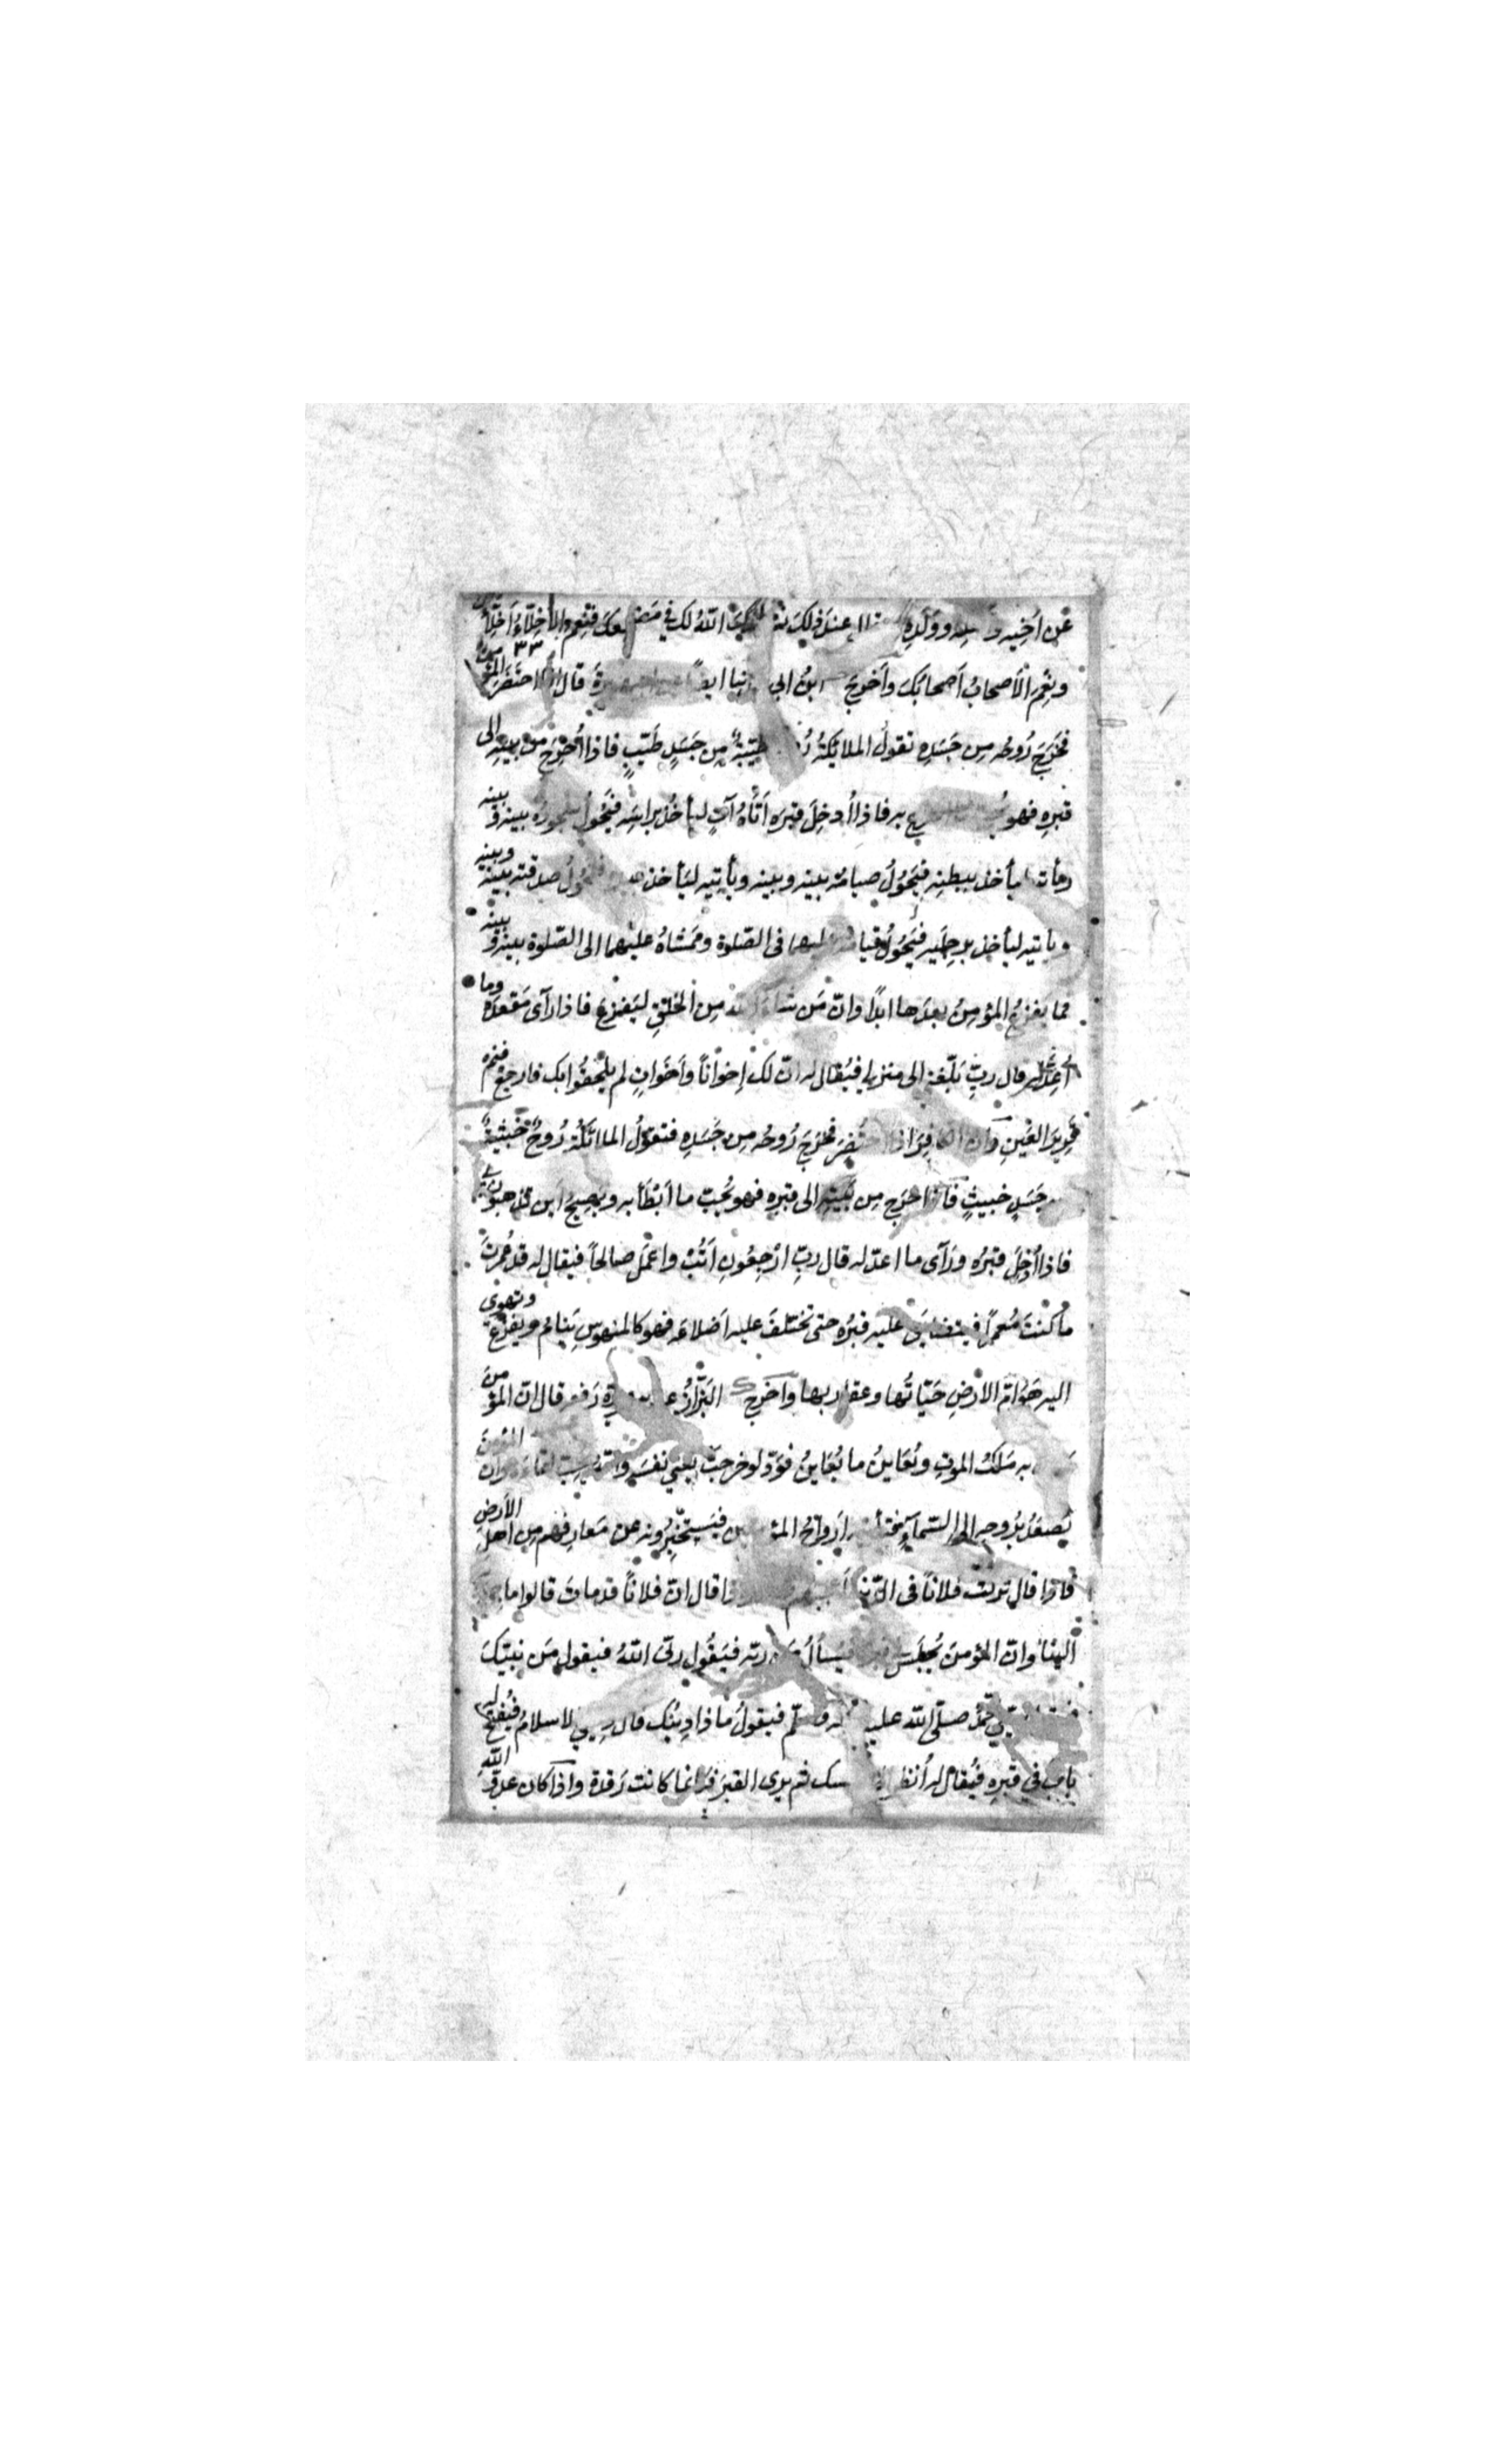 عن اخيه و وولَدِه عند ذلك الله لك في فنِعم الأخِلّاءُ اَخِلّا
ونِعم الأصحابُ اَصحابُك واَخرَجَ ابن ابي قال احتضر المؤمن
فخرَجَ رُوحُه مِن جَسَدِه تقولُ الملائكةُ طيّبةٌ مِن جَسَدٍ طَيّبٍ فاذا اُخرِجَ من بيته الى
قبرِه فهو به فاذا اُدخِلَ قبرَه اَتاهُ آتٍ ليأخذ براسِه فيَحُولُ سجودُه بينه وبينه
ليأخذ ببطنِه فيَحُولُ صيامُه بينه وبينه ويأتيه ليَأخذ صدقته بينه وبينه
ويأتيه ليأخذ برجلَيه فيَحُولُ قيامُه عليهما فى الصّلوة ومَمشاهُ عليهما الى الصّلوة بينه وبينه
فما يفزعُ المؤمِنُ بعدَها ابدًا وانّ مَن شاء الله مِن الخلقِ ليَفزعُ فاذا رَآى مَقعدَه وما
اُعِدَّ له قال ربِّ بَلّغنِ الى منزلي فيُقال له انّ لك اِخوانًا واَخَواتٍ لم يلحقُوا بك فارجعْ فنَم
قَرِيرَ العَينِ وانّ الكافِرَ اذا احتُضِرَ فخرَجَ رُوحُه مِن جَسَدِه فتقولُ الملائكةُ رُوحٌ خبيثةٌ
جَسَدٍ خبيثٍ فاذا اخرج مِن بيته الى قبرِه فهو يُحبّ ما اَبْطَأ به ويَصيحُ اين تذهبون بي
فاذا اُدخِلَ قبرَه ورَآى ما اعدّ له قال ربِّ ارْجِعُونِ اَتُبْ واعْمَلْ صالحاً فيقال له قد عُمِرتَ
ما كنتَ مُعمرًا فيتضايَق عليه قبرُه حتى تختلفَ عليه اَضلاعُه فهو كالمنهوسِ يَنامُ ويفزعُ وتهوي
اليه هَوامّ الارضِ حَيّاتُها وعقاربها واَخرج البَزّارُ عن رَفعه قال ان المؤمنَ
به مَلَكُ الموتِ ويُعَاينُ ما يُعَاينُ فوَدّ لو خرجت يعني نفسَه والله يحبّ لقاءَه وان المؤمنَ
يَصعَدُ برُوحِه الى السّماءِ فتأتيه اَرواحُ المؤمنين فيَستخبِرُونه عن مَعارِفهم مِن اهلِ الاَرضِ
فاذا قال تركت فلانًا فى الدّنيا قال انّ فلانًا قد مات قالوا ما
الينا وانّ المؤمنَ يُجلَسُ فيُسألُ مَن ربّه فيَقُول ربّيَ اللهُ فيقول مَن نبيُّكَ
محمّد صلّى الله عليه وسلّم فيقولُ ماذا دِينُك قال الاسلامُ فيُفتَحُ له
باب في قبرِه فيُقال له اُنظر ثم يرى القبرَ فكانما كانت رَقدة واذا كان عدوّ اللهِ